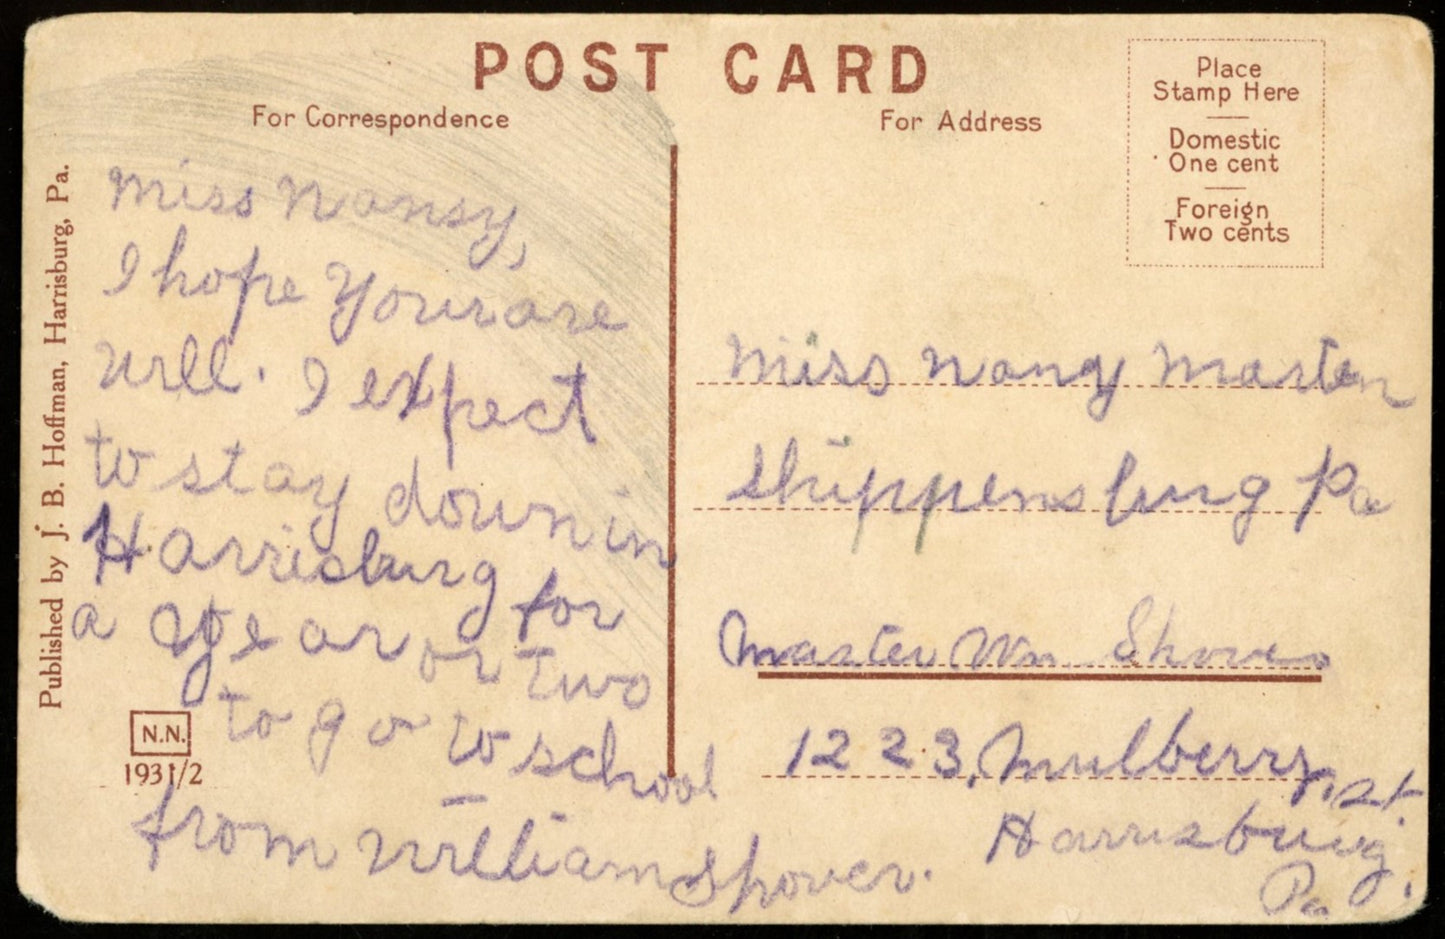 POST CARD
For Correspondence
For Address
Place
Stamp Here
Domestic
One cent
Foreign
Two cents
Published by J. B. Hoffman, Harrisburg, Pa.
Miss Nansy,
I hope Your are
well. I expect
to stay down in
Harrisburg for
a year or two
to go to school
from William Shover.
N.N.
1931/2
Miss Nancy Marten
Shippensburg Pa
Master Wm. Shover
1223, Mulberry, st.
Harrisburg,
Pa.